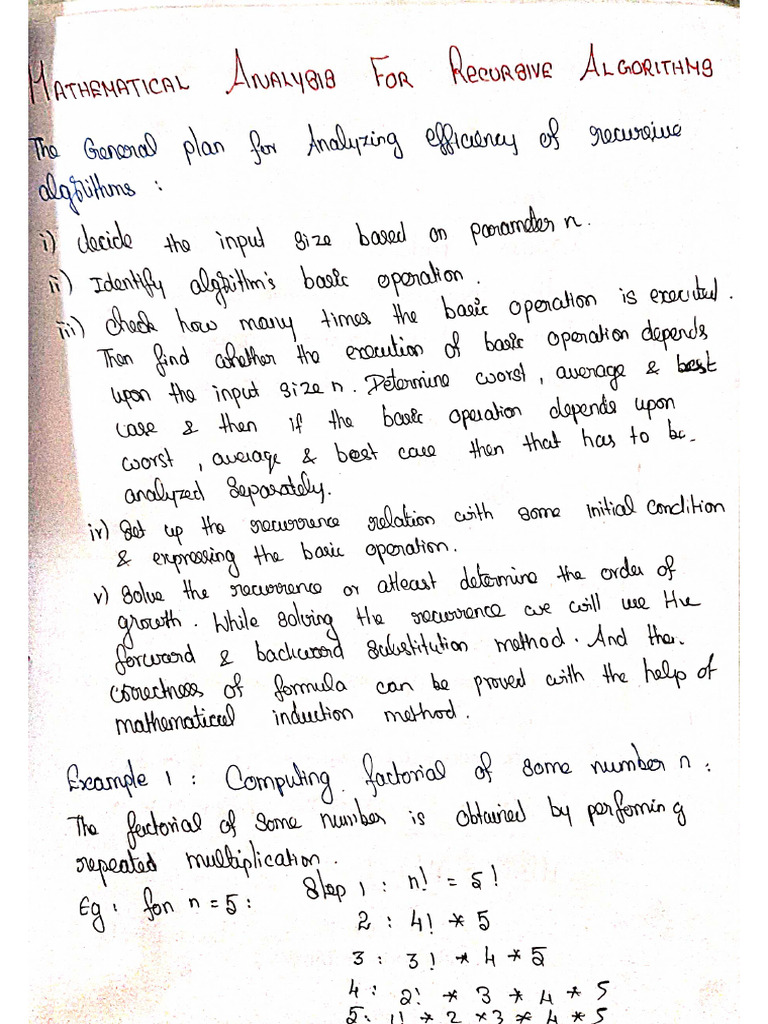 MATHEMATICAL ANALYSIS FOR RECURSIVE ALGORITHMS
The General plan for Analyzing efficiency of recursive
algorithms :
i) decide the input size based on parameter n.
ii) Identify algorithm's basic operation.
iii) check how many times the basic operation is executed.
Then find whether the execution of basic operation depends
upon the input size n. Determine worst, average & best
case & then if the basic operation depends upon
worst, average & best case then that has to be
analyzed separately.
iv) Set up the recurrence relation with some initial condition
& expressing the basic operation.
v) Solve the recurrence or atleast determine the order of
growth. While solving the recurrence we will use the
forward & backward substitution method. And the
correctness of formula can be proved with the help of
mathematical induction method.
Example 1 : Computing factorial of some number n :
The factorial of some number is obtained by performing
repeated multiplication.
Eg : for n = 5 : Step 1 : n! = 5!
2 : 4! * 5
3 : 3! * 4 * 5
4 : 2! * 3 * 4 * 5
5 : 1! * 2 * 3 * 4 * 5